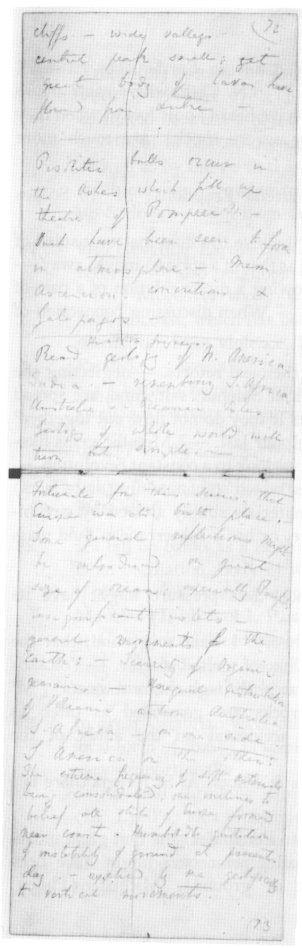 72
cliffs — wide valleys
central peak small; yet
great body of lavas have
flowed from centre —
Pisolitic balls occur in
the Ashes which fill up
theatre of Pompeii —
such have been seen to form
in atmosphere — Mem
Ascension concretions &
Galapagos —
Read geology of N. America.
India. — remembering S. Africa
Australia — Oceanic Isles
Geology of whole world will
turn out simple. —
Fortunate for this science, that
Europe was its birth place. —
Some general reflections might
be introduced on great
size of ocean; especially Pacific:
insignificant islets —
general movements of the
earth; — Scarcity of Organic
remains — Unequal distribution
of Volcanic action Australia
S. Africa — on one side.
S. America on the other:
The extreme frequency of soft materials
being consolidated; one inclines to
belief all strata of Europe formed
near coast. Humboldts quotation
of instability of ground at present
day. — applied by me geologically
to vertical movements.
73